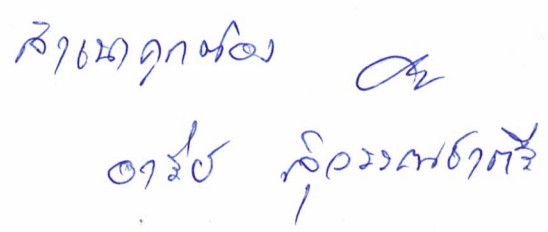 สำเนาถูกต้อง
อารีย์ สุวรรณชาตรี